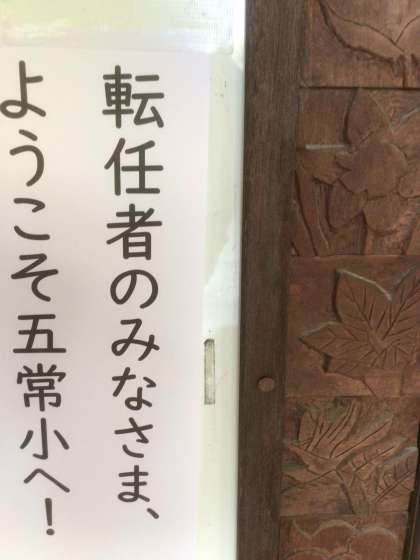 転任者のみなさま、
ようこそ五常小へ！